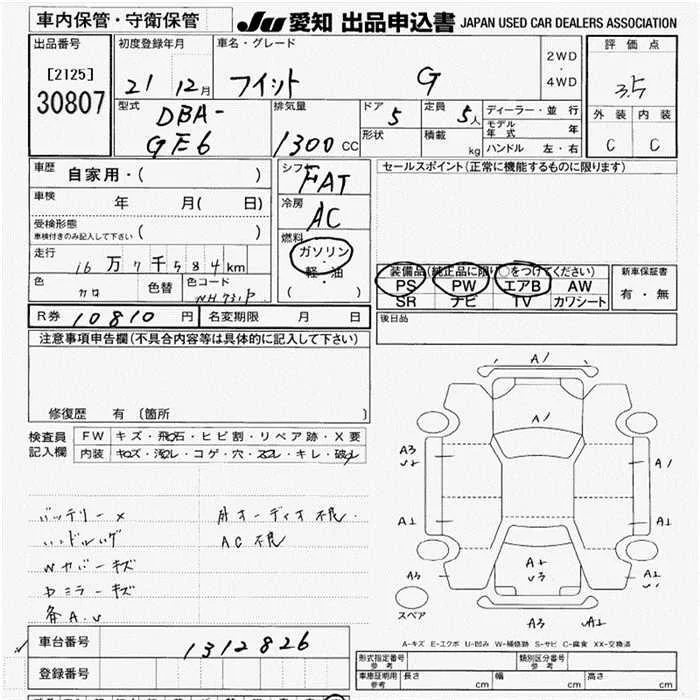 車内保管・守衛保管
JU 愛知 出品申込書 JAPAN USED CAR DEALERS ASSOCIATION
出品番号
[2125]
30807
初度登録年月
21 12月
車名・グレード
フィット G
2WD
・
4WD
評価点
3.5
外装 内装
C C
型式
DBA-
GE6
排気量
1300 CC
ドア 5
形状
定員 5人
積載 kg
ディーラー・並行
モデル年式 年
ハンドル 左・右
車歴 自家用・( )
車検 年 月( 日)
受検形態
車検付きのみ記入して下さい ( )
走行 16万7千584km
色 クロ 色替 色コード NH731P
シフト FAT
冷房 AC
燃料
ガソリン
・
軽・油
( )
セールスポイント(正常に機能するものに限ります)
装備品(純正品に限り○をつけてください)
PS PW エアB AW
SR ナビ TV カワシート
新車保証書
有・無
R券 10810 円 名変期限 月 日
後日品
注意事項申告欄(不具合内容等は具体的に記入して下さい)
修復歴 有 〔箇所 〕
検査員
記入欄
FW キズ・飛石・ヒビ割・リペア跡・X要
内装 キズ・汚レ・コゲ・穴・スレ・キレ・破レ
バッテリー×
ハンドルハゲ
Wカバーキズ
Dミラーキズ
各A.U
オーディオ不良.
AC不良
A1
A1
A3
A1
A1
A1
A3
A3
スペア
A-キズ E-エクボ U-凹み W-補修跡 S-サビ C-腐食 XX-交換済
車台番号 1312826
登録番号
形式指定番号
参考
類別区分番号
参考
車庫証明用
参考
長さ cm 幅 cm 高さ cm